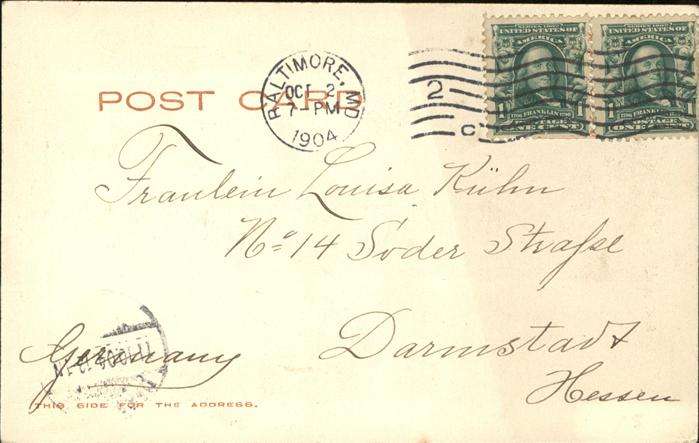 SERIES 1902
UNITED STATES OF
AMERICA
1 FRANKLIN 1
POSTAGE
ONE CENT
SERIES 1902
UNITED STATES OF
AMERICA
1 FRANKLIN
POSTAGE
ONE CENT
BALTIMORE, MD
OCT 2
7-PM
1904
2
C
POST CARD
Fraulein Louisa Kühn
No 14 Soder Straße
Darmstadt
Hessen
Germany
THIS SIDE FOR THE ADDRESS.